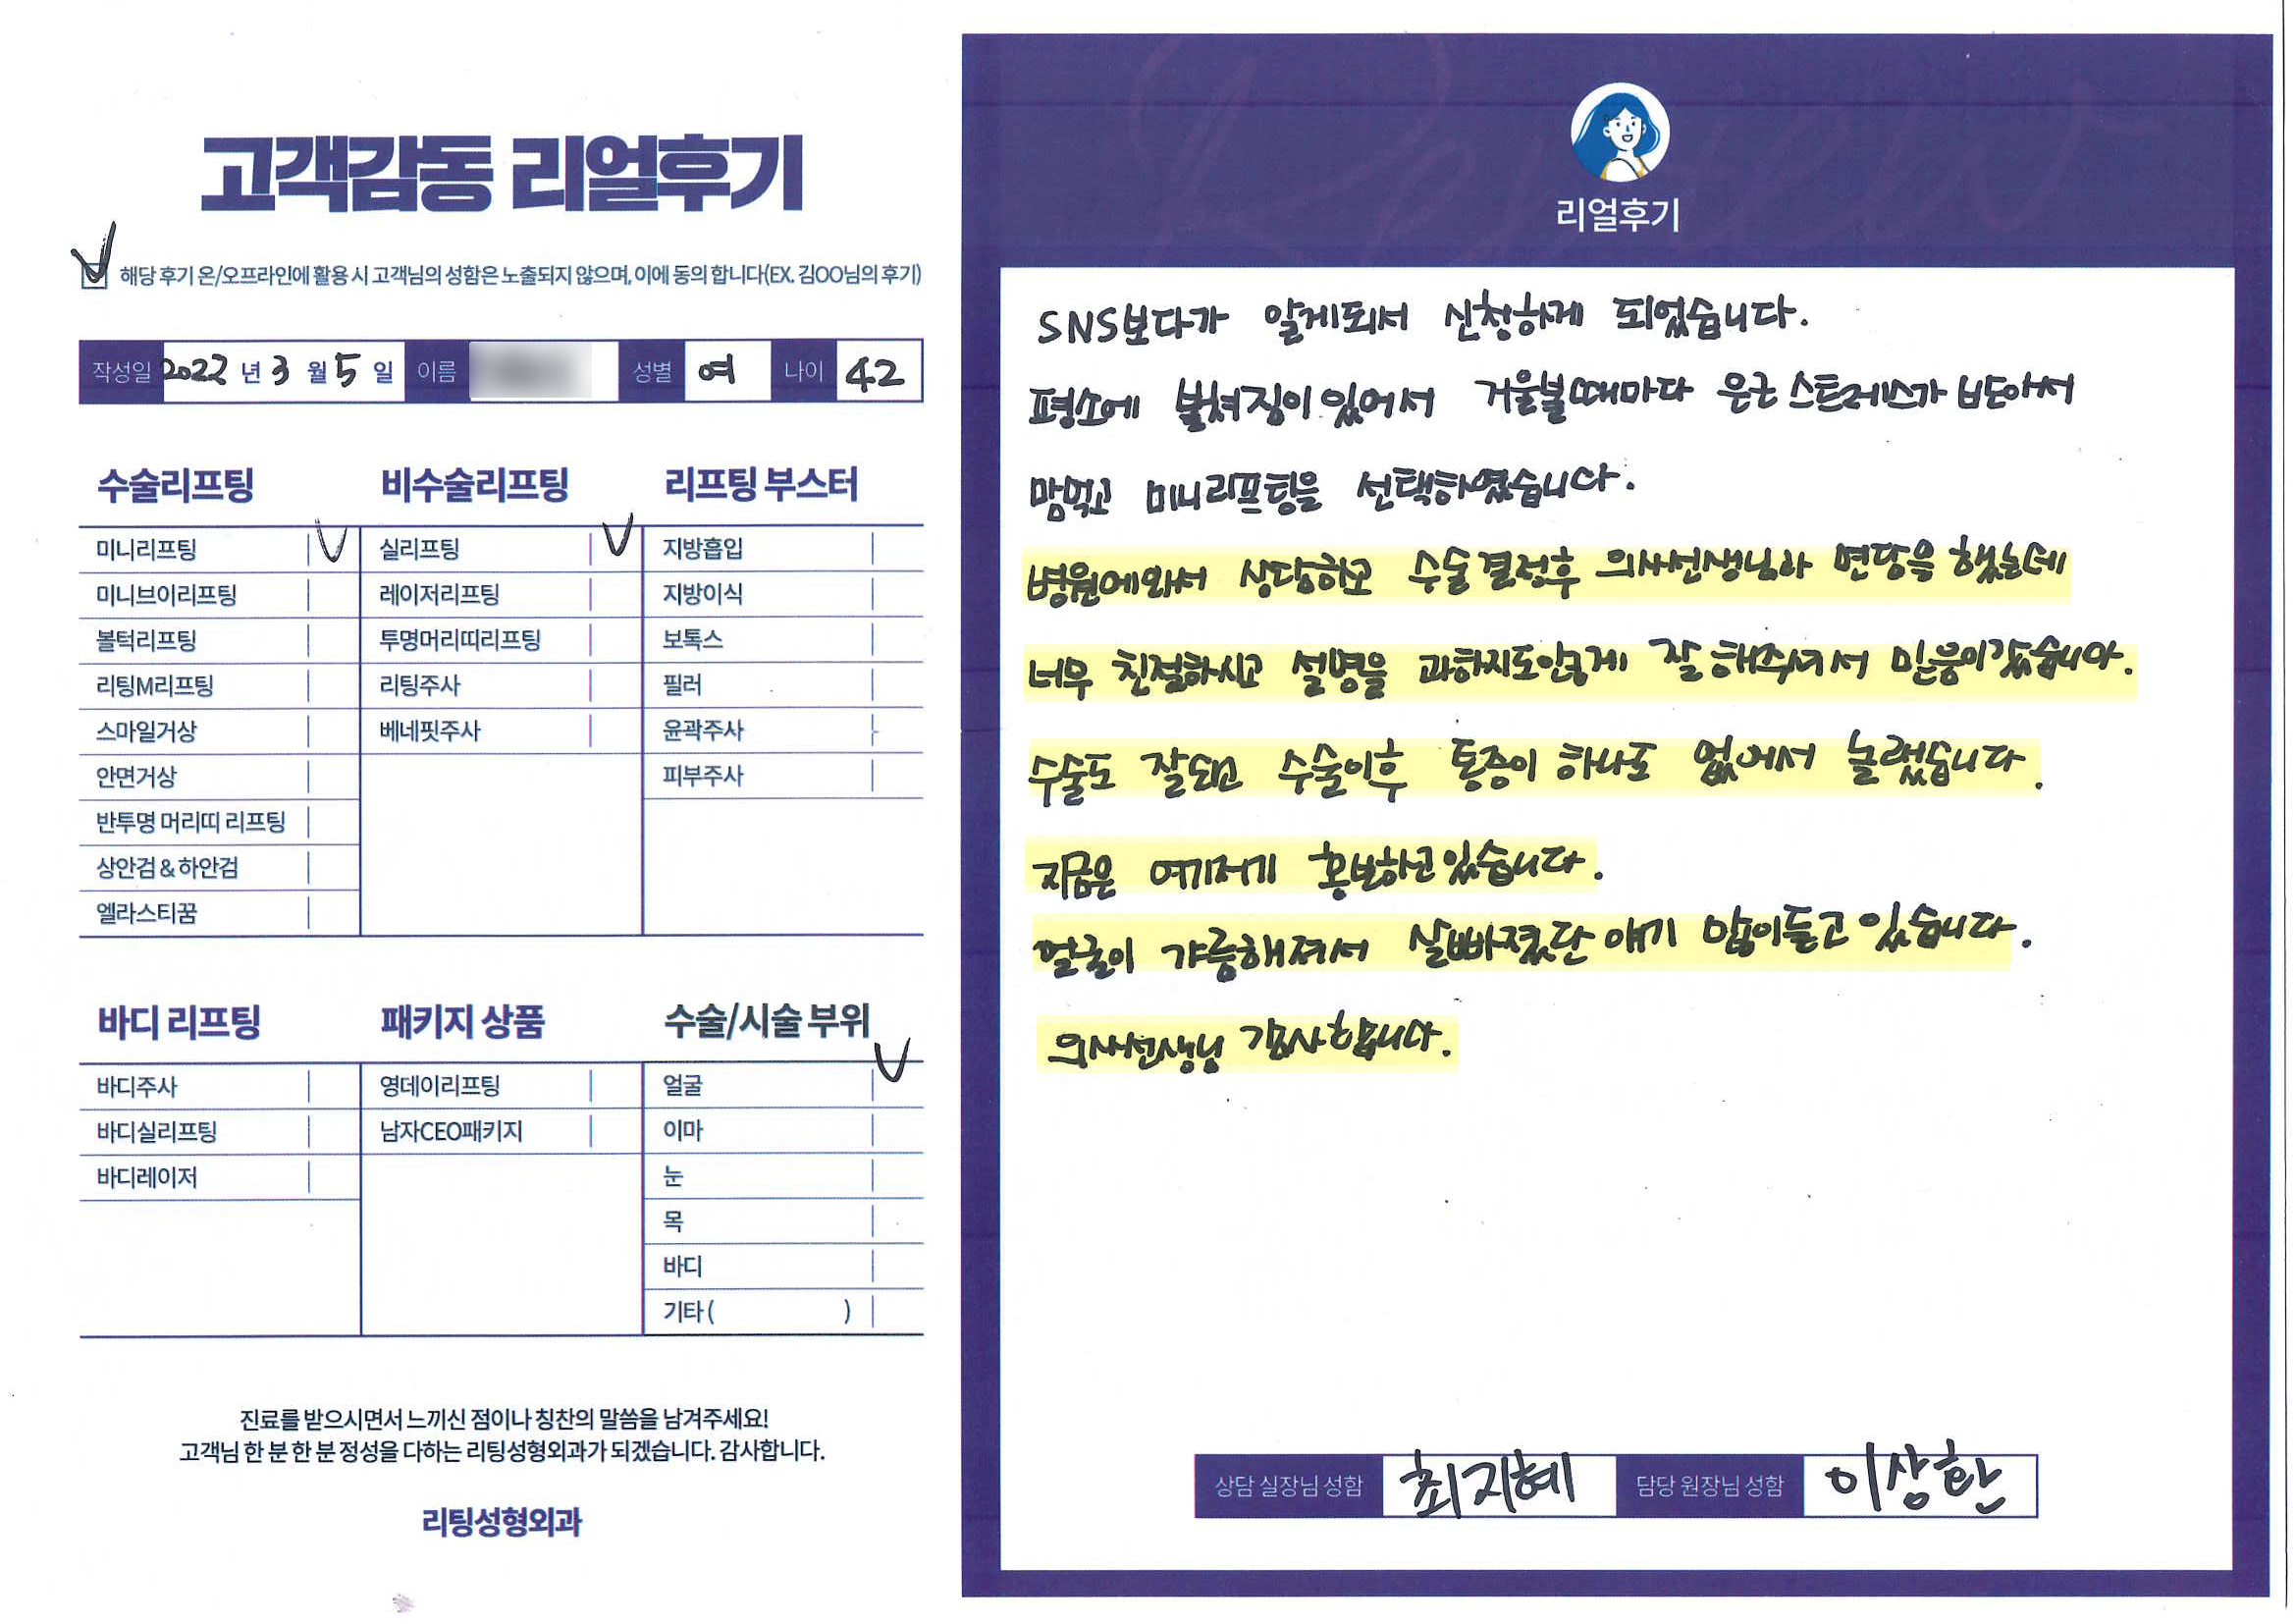 고객감동 리얼후기
해당 후기 온/오프라인에 활용 시 고객님의 성함은 노출되지 않으며, 이에 동의 합니다(EX. 김OO님의 후기)
작성일 2022 년 3 월 5 일 이름 성별 여 나이 42
수술리프팅
미니리프팅
미니브이리프팅
볼턱리프팅
리팅M리프팅
스마일거상
안면거상
반투명 머리띠 리프팅
상안검 & 하안검
엘라스티꿈
비수술리프팅
실리프팅
레이저리프팅
투명머리띠리프팅
리팅주사
베네핏주사
리프팅 부스터
지방흡입
지방이식
보톡스
필러
윤곽주사
피부주사
바디 리프팅
바디주사
바디실리프팅
바디레이저
패키지 상품
영데이리프팅
남자CEO패키지
수술/시술 부위
얼굴
이마
눈
목
바디
기타 ( )
진료를 받으시면서 느끼신 점이나 칭찬의 말씀을 남겨주세요!
고객님 한 분 한 분 정성을 다하는 리팅성형외과가 되겠습니다. 감사합니다.
리팅성형외과
리얼후기
SNS보다가 알게되서 신청하게 되었습니다.
평소에 볼쳐짐이 있어서 거울볼때마다 은근 스트레스가 받아서
맘먹고 미니리프팅을 선택하였습니다.
병원에와서 상담하고 수술결정후 의사선생님과 면담을 했는데
너무 친절하시고 설명을 과하지도않게 잘 해주셔서 믿음이갔습니다.
수술도 잘되고 수술이후 통증이 하나도 없어서 놀랬습니다.
지금은 여기저기 홍보하고있습니다.
얼굴이 갸름해져서 살빠졌단 얘기 많이듣고있습니다.
의사선생님 감사합니다.
상담 실장님 성함 최지혜 담당 원장님 성함 이상환